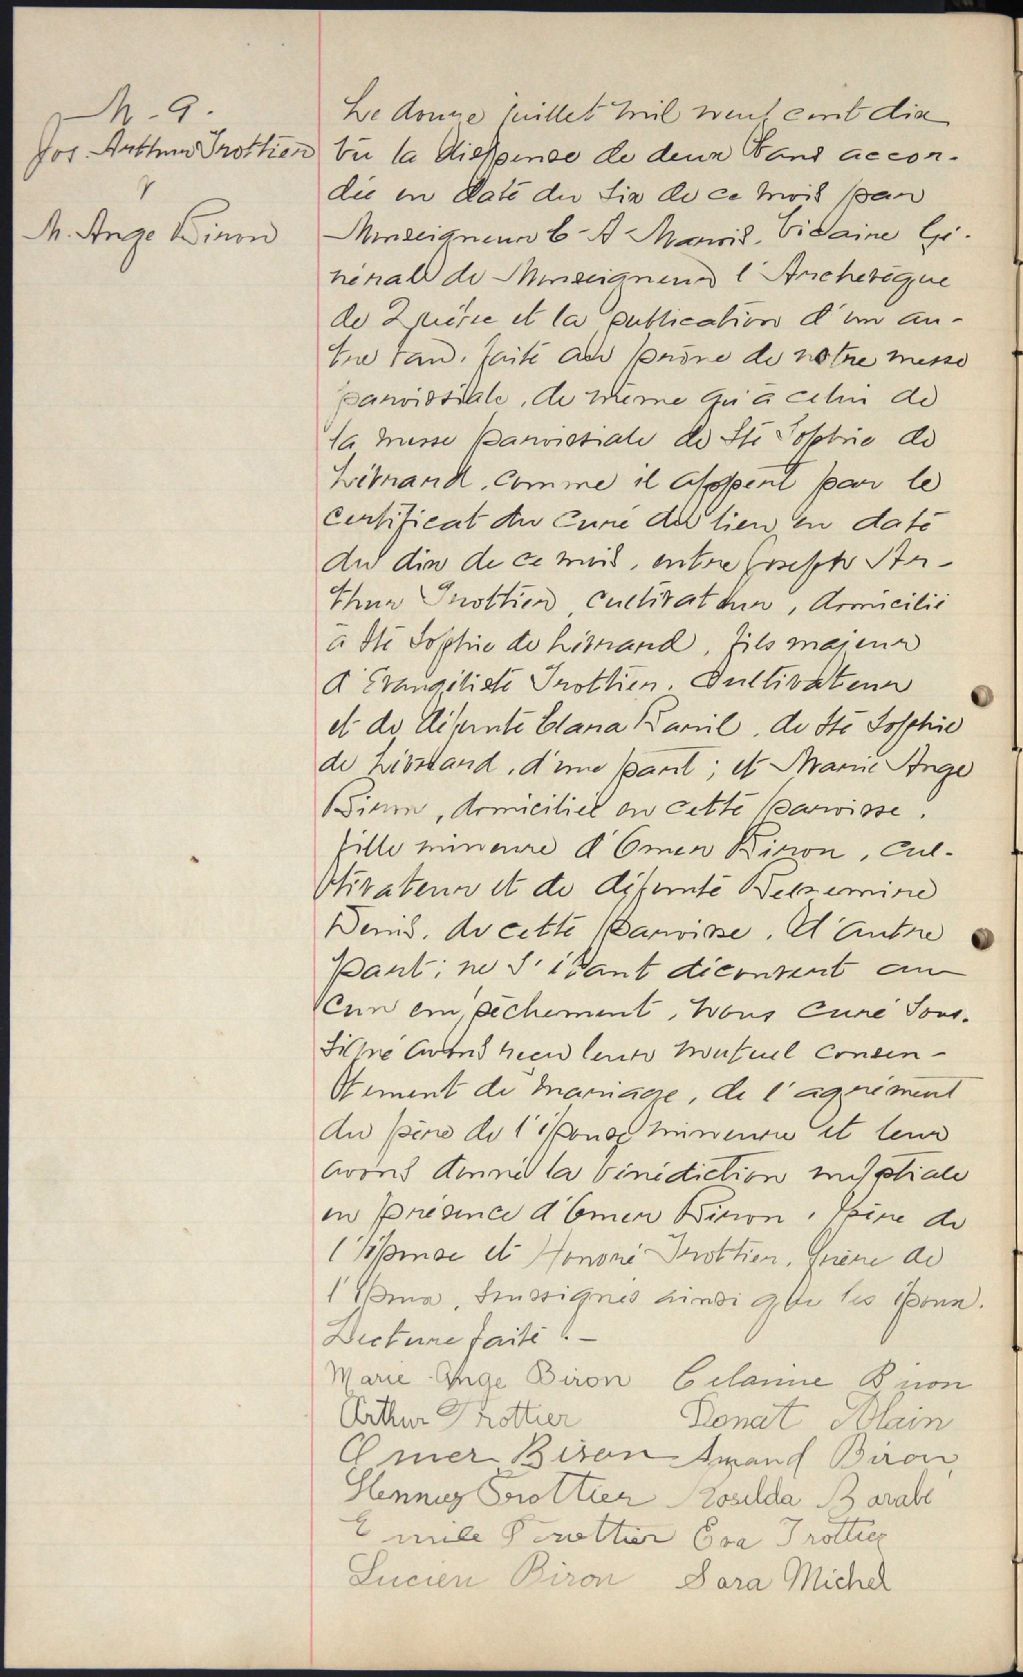 M - 9.
Jos. Arthur Trottier
&
M. Ange Biron
Le douze juillet mil neuf cent dix
Vu la dispense de deux bans accor-
dée en date du six de ce mois par
Monseigneur C-A-Marois, Vicaire Gé-
néral de Monseigneur l'Archevêque
de Québec et la publication d'un au-
tre ban, faite au prône de notre messe
paroissiale, de même qu'à celui de
la messe paroissiale de Ste Sophie de
Lévrard, comme il appert par le
certificat du curé du lieu en date
du dix de ce mois, entre Joseph Ar-
thur Trottier, cultivateur, domicilié
à Ste Sophie de Lévrard, fils majeur
d'Evangéliste Trottier, cultivateur
et de défunte Clara Baril, de Ste Sophie
de Lévrard, d'une part; et Marie Ange
Biron, domiciliée en cette paroisse,
fille mineure d'Omer Biron, cul-
tivateur et de défunte Belzemire
Denis, de cette paroisse, d'autre
part; ne s'étant découvert au-
cun empêchement, nous curé sous-
signé avons reçu leur mutuel consen-
tement de mariage, de l'agrément
du père de l'épouse mineure et leur
avons donné la bénédiction nuptiale
en présence d'Omer Biron, père de
l'épouse et Honoré Trottier, frère de
l'époux, soussignés ainsi que les époux.
Lecture faite. -
Marie-Ange Biron Célanire Biron
Arthur Trottier Donat Alain
Omer Biron Armand Biron
Trottier Rosilda Barabé
Emile Trottier Eva Trottier
Lucien Biron Sara Michel